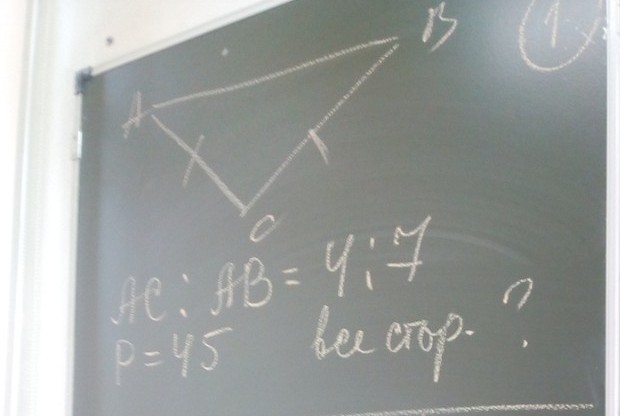 B
A
C
AC : AB = 4 : 7
P = 45 все стор. ?